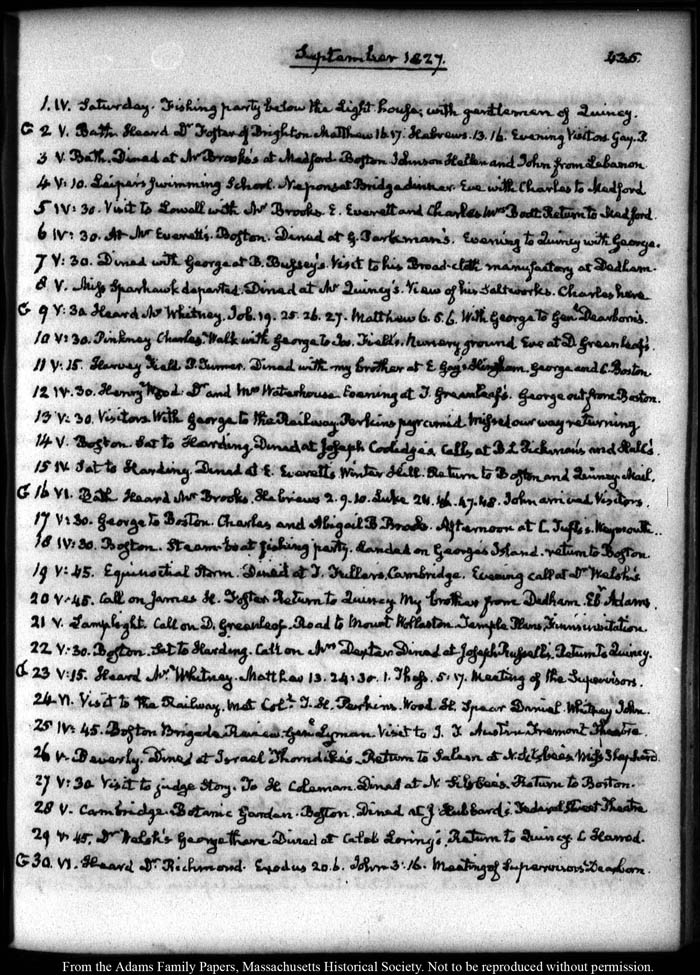 September 1827. 435.
1. IV. Saturday. Fishing party below the Light house; with gentlemen of Quincy.
G 2 V. Bath. Heard Dr Foster of Brighton. Matthew 16.17. Hebrews. 13.16. Evening Visitors Gay. P.
3 V. Bath. Dined at Mr Brooks's at Medford. Boston Johnson Hellen and John from Lebanon
4 V: 10. Swimming School. Neponset Bridge dinner. Eve with Charles to Medford
5 IV: 30. Visit to Lowell with Mr Brooks. E. Everett and Charles Mrs Bott. Return to Medford.
6 IV: 30. At Mr Everett's. Boston. Dined at G. Parkman's. Evening to Quincy with George.
7 V: 30. Dined with George at B. Bussey's. Visit to his Broad-cloth manufactory at Dedham.
8 V. Miss Sparhawk departed. Dined at Mr Quincy's. View of his Saltworks. Charles here
G 9 V: 30 Heard Mr Whitney. Job. 19. 25. 26. 27. Matthew 6. 5. 6. With George to Genl Dearborn's.
10 V: 30. Pinkney Charles. Walk with George to Jos. Nursery ground Eve at D. Greenleaf's.
11 V: 15. Harvey Field P. Turner. Dined with my brother at E Gay's Hingham. George and C. Boston
12 IV: 30. Henry Wood Dr and Mrs Waterhouse Evening at T. Greenleaf's. George out from Boston.
13 V: 30. Visitors With George to the Railway. Perkins pyramid. Missed our way returning
14 V. Boston. Sat to Harding. Dined at Joseph Coolidge's Calls at B. L. and Hall's.
15 IV Sat to Harding. Dined at E. Everett's Winter Hill. Return to Boston and Quincy. Mail.
G 16 VI. Bath Heard Mr Brooks. Hebrews 2. 9. 10. Luke 24. 46. 47. 48. John arrived Visitors.
17 V: 30. George to Boston. Charles and Abigail B Brooks. Afternoon at C. Tufts's. Weymouth..
18 IV: 30. Boston. Steam-boat fishing party. Landed on Georges Island. return to Boston.
19 V: 45. Equinoctial Storm. Dined at T. Fullers, Cambridge. Evening call at Dr Welsh's
20 V. 45. Call on James H. Foster Return to Quincy My brother from Dedham. Eb Adams.
21 V. Lamplight. Call on D. Greenleaf. Road to Mount Wollaston. Temple Plans, invitation
22 V: 30. Boston. Sat to Harding. Call on Mrs Dexter Dined at Joseph Russell's, Return to Quincy.
G 23 V: 15. Heard Mr Whitney. Matthew 13. 24: 30. 1. Thess. 5: 17. Meeting of the Supervisors.
24 VI. Visit to the Railway. Met Coll T. H. Perkins. Wood H. Spear Daniel. Whitney John.
25 IV: 45. Boston Brigade Review. Genl Lyman. Visit to J. T Austin Tremont Theatre
26 V. Beverly. Dined at Israel Thorndike's. Return to Salem at N. Silsbee's Miss Shephard
27 V: 30 Visit to judge Story. To H. Coleman. Dined at N. Silsbee's. Return to Boston.
28 V. Cambridge. Botanic Garden. Boston. Dined at J. Hubbard's. Federal Street Theatre
29 V. 45. Dr Welsh's George there. Dined at Caleb Loring's, Return to Quincy. C. Harrod.
G 30. VI. Heard Dr Richmond. Exodus 20. 6. John 3: 16. Meeting of Supervisors. Dearborn.
From the Adams Family Papers, Massachusetts Historical Society. Not to be reproduced without permission.